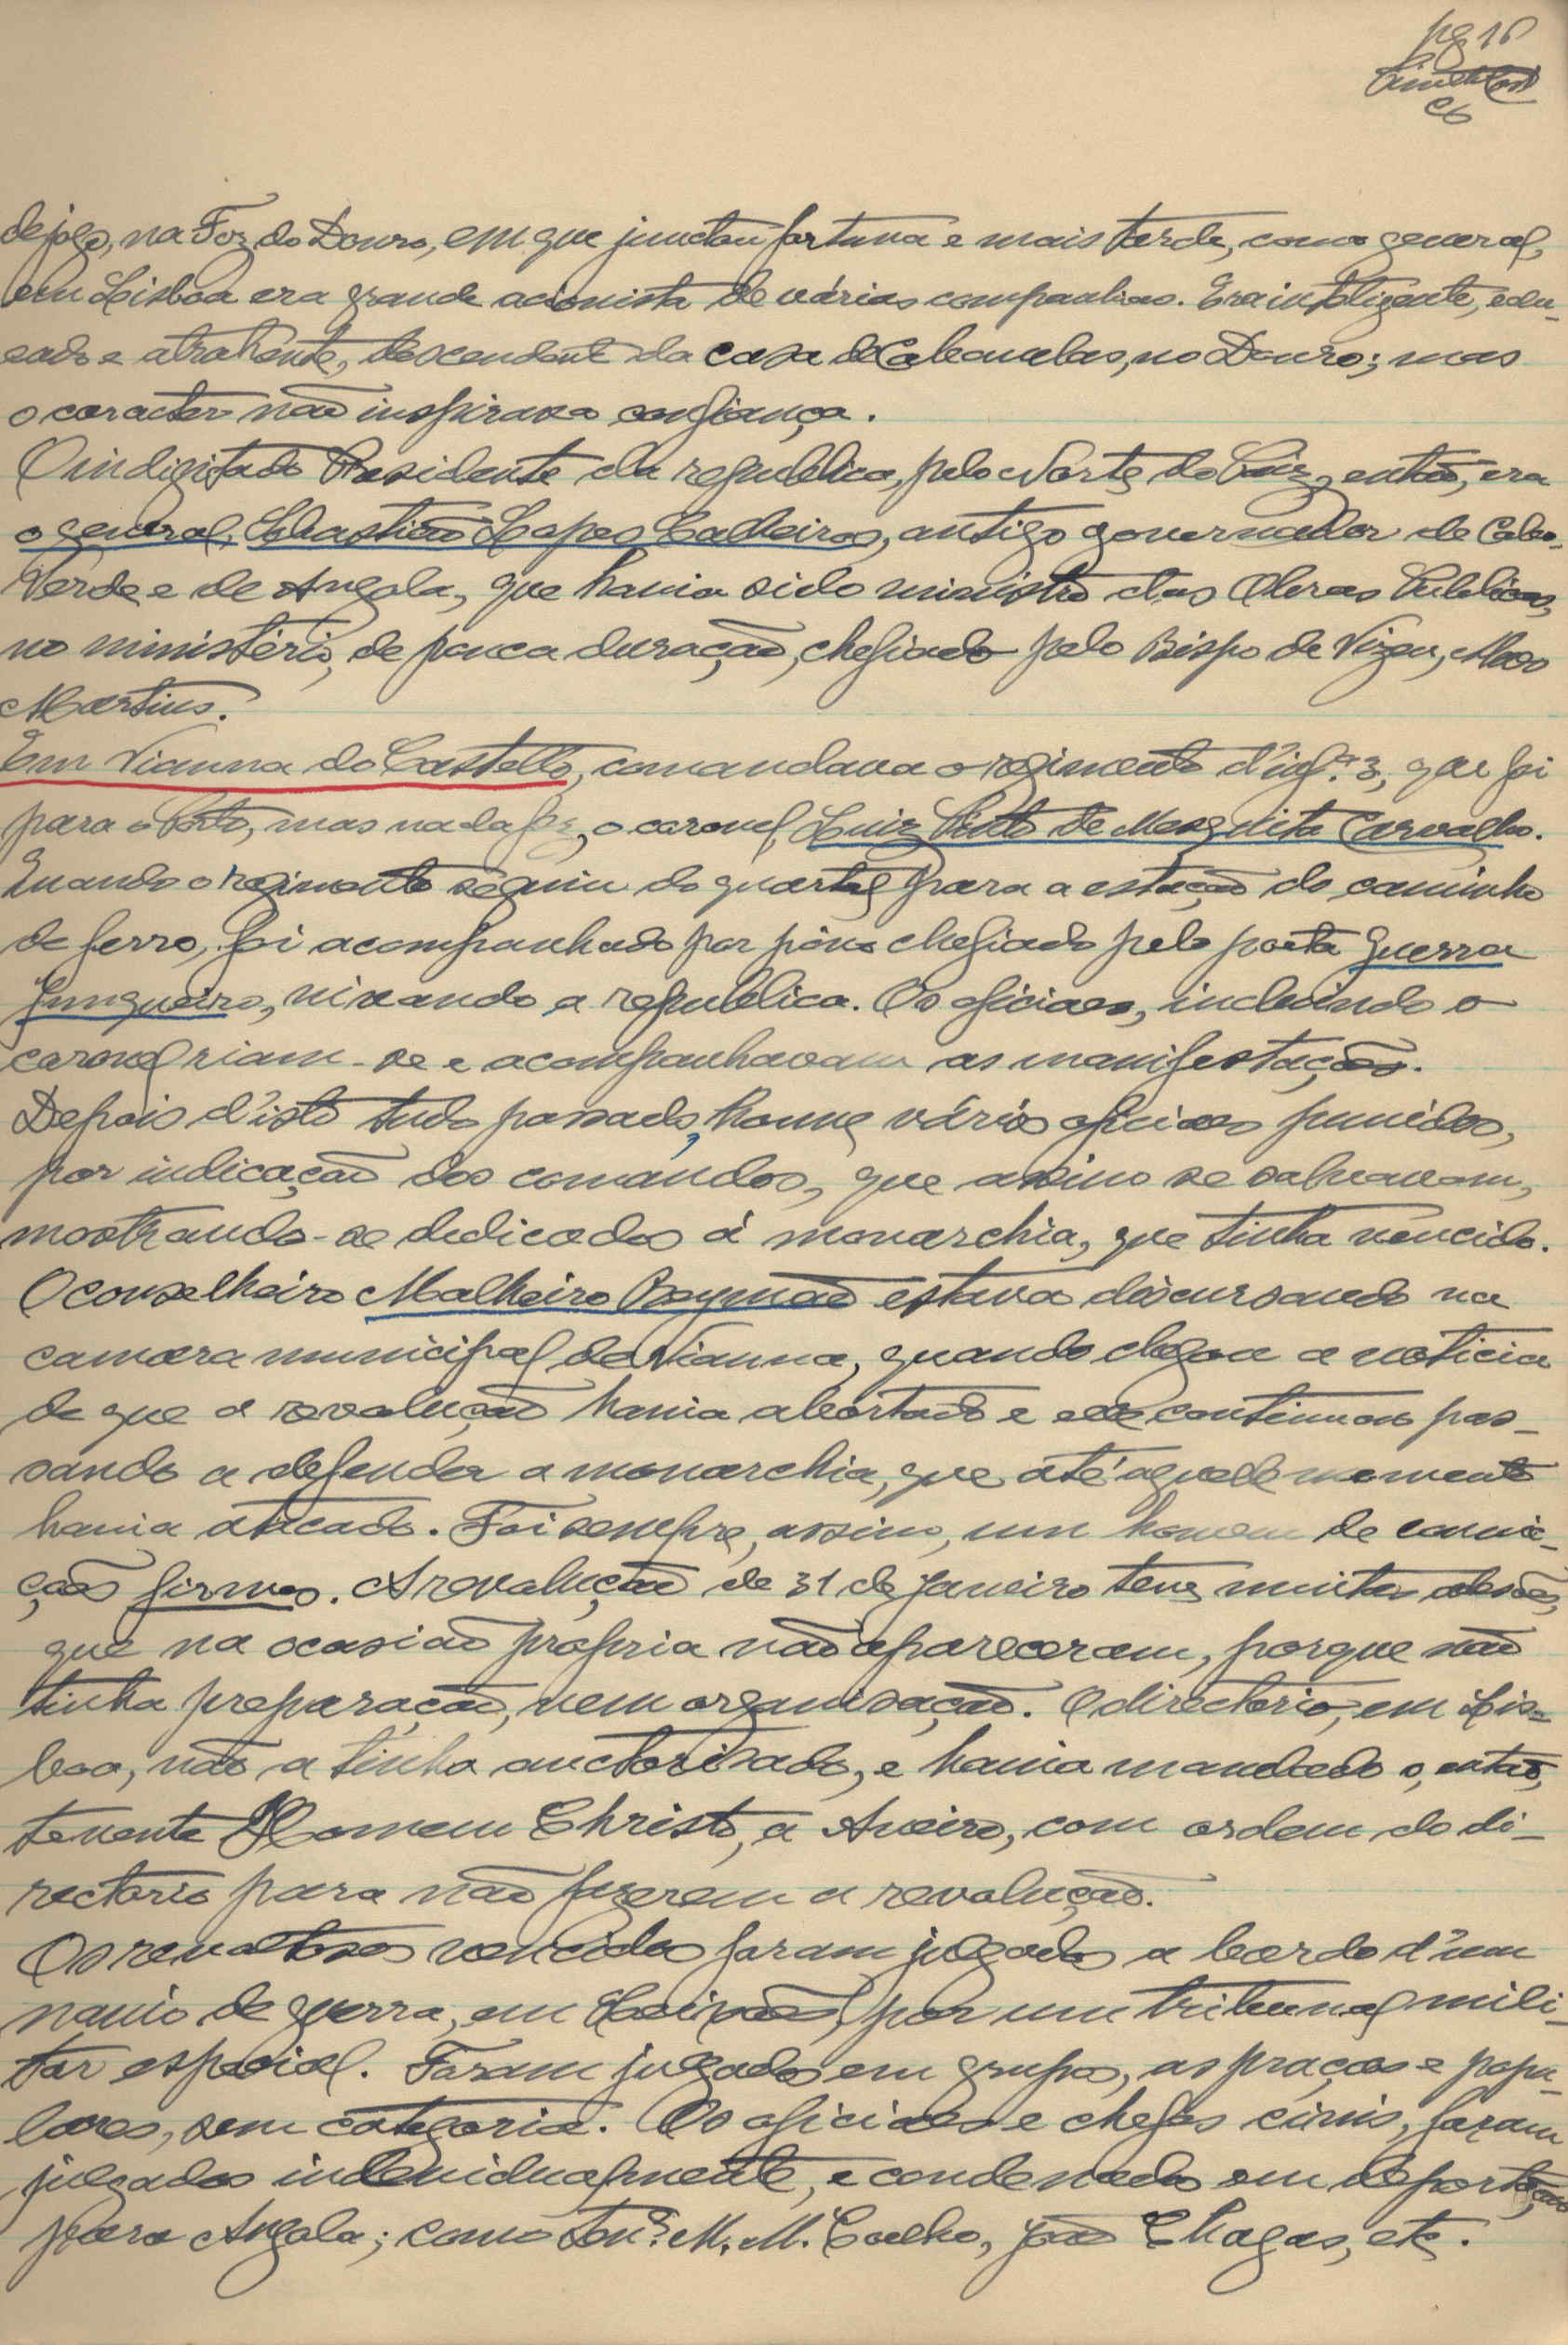 pg 16
de jogo, na Foz do Douro, em que junctou fortuna e mais tarde, como general,
em Lisboa era grande acionista de várias companhias. Era inteligente, edu-
cado e atrahente, descendente da casa de Cabanelas, no Douro; mas
o caracter não inspirava confiança.
O indigitado Presidente da republica, pelo Norte do Paiz, então, era
o general, Sebastião Lopes Calheiros, antigo governador de Cabo-
Verde e de Angola, que havia sido ministro das Obras Publicas,
no ministério, de pouca duração, chefiado pelo Bispo de Vizeu, Alves
Martins.
Em Vianna do Castello, comandava o regimento d'inf.ª 3, que foi
para o Porto, mas nada fez, o coronel, Luiz Pinto de Mesquita Carvalho.
Quando o regimento seguiu do quartel para a estação do caminho
de ferro, foi acompanhado por pôvo chefiado pelo poeta Guerra
Junqueiro, vivando a republica. Os oficiaes, incluindo o
coronel riam-se e acompanhavam as manifestações.
Depois d'isto tudo passado, houve vários oficiaes punidos,
por indicação dos comandos, que assim se salvavam,
mostrando-se dedicados á monarchia, que tinha vencido.
O conselheiro Malheiro Reymão estava discursando na
camara municipal de Vianna, quando chegou a noticia
de que a revolução havia abortado e ele continuou pas-
sando a defender a monarchia, que até aquele momento
havia atacado. Foi sempre, assim, um homem de convic-
ções firmes. A revolução de 31 de janeiro teve muitas adesões,
que na ocasião propria não apareceram, porque não
tinha preparação, nem organisação. O directorio, em Lis-
boa, não a tinha auctorisado, e havia mandado o, então,
tenente Homem Christo, a Aveiro, com ordem do di-
rectorio para não fazerem a revolução.
Os revoltosos vencidos foram julgados a bordo d'um
navio de guerra, em Leixões, por um tribunal mili-
tar especial. Foram julgados em grupos, as praças e popu-
lares, sem categoria. Os oficiaes e chefes civis, foram
julgados individualmente, e condenados em deportação
para Angola; como Ten.e M. M. Coelho, João Chagas, etc.